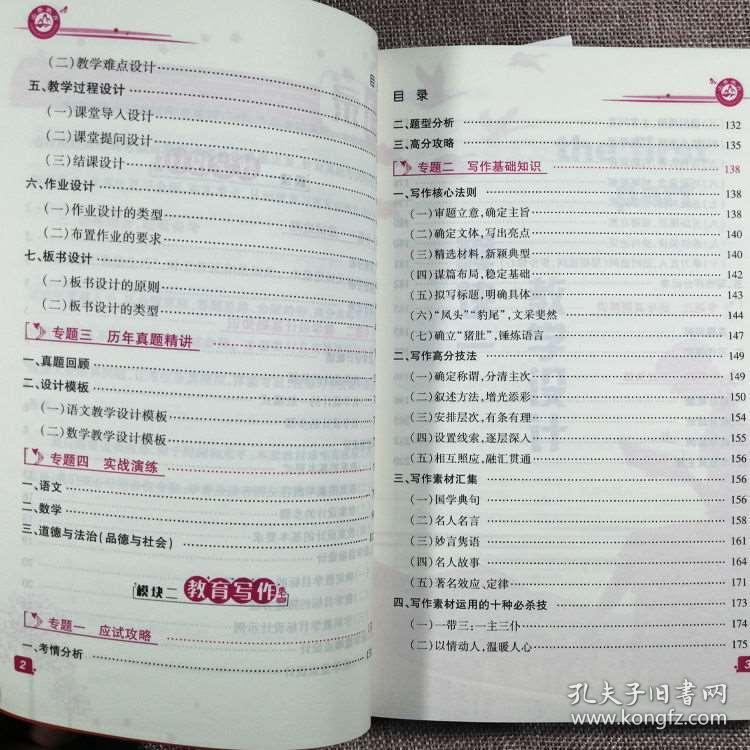 (二)教学难点设计
五、教学过程设计
(一)课堂导入设计
(二)课堂提问设计
(三)结课设计
六、作业设计
(一)作业设计的类型
(二)布置作业的要求
七、板书设计
(一)板书设计的原则
(二)板书设计的类型
专题三 历年真题精讲
一、真题回顾
二、设计模板
(一)语文教学设计模板
(二)数学教学设计模板
专题四 实战演练
一、语文
二、数学
三、道德与法治(品德与社会)
模块二 教育写作
专题一 应试攻略
一、考情分析
2
目 录
二、题型分析 132
三、高分攻略 135
专题二 写作基础知识 138
一、写作核心法则 138
(一)审题立意,确定主旨 138
(二)确定文体,写出亮点 140
(三)精选材料,新颖典型 140
(四)谋篇布局,稳定基础 142
(五)拟写标题,明确具体 143
(六)“凤头”“豹尾”,文采斐然 144
(七)确立“猪肚”,锤炼语言 147
二、写作高分技法 149
(一)确定称谓,分清主次 149
(二)叙述方法,增光添彩 150
(三)安排层次,有条有理 154
(四)设置线索,逐层深入 155
(五)相互照应,融汇贯通 156
三、写作素材汇集 156
(一)国学典句 156
(二)名人名言 158
(三)妙言隽语 161
(四)名人故事 166
(五)著名效应、定律 171
四、写作素材运用的十种必杀技 173
(一)一带三:一主三仆 174
(二)以情动人,温暖人心 175
3
孔夫子旧书网
www.kongfz.com